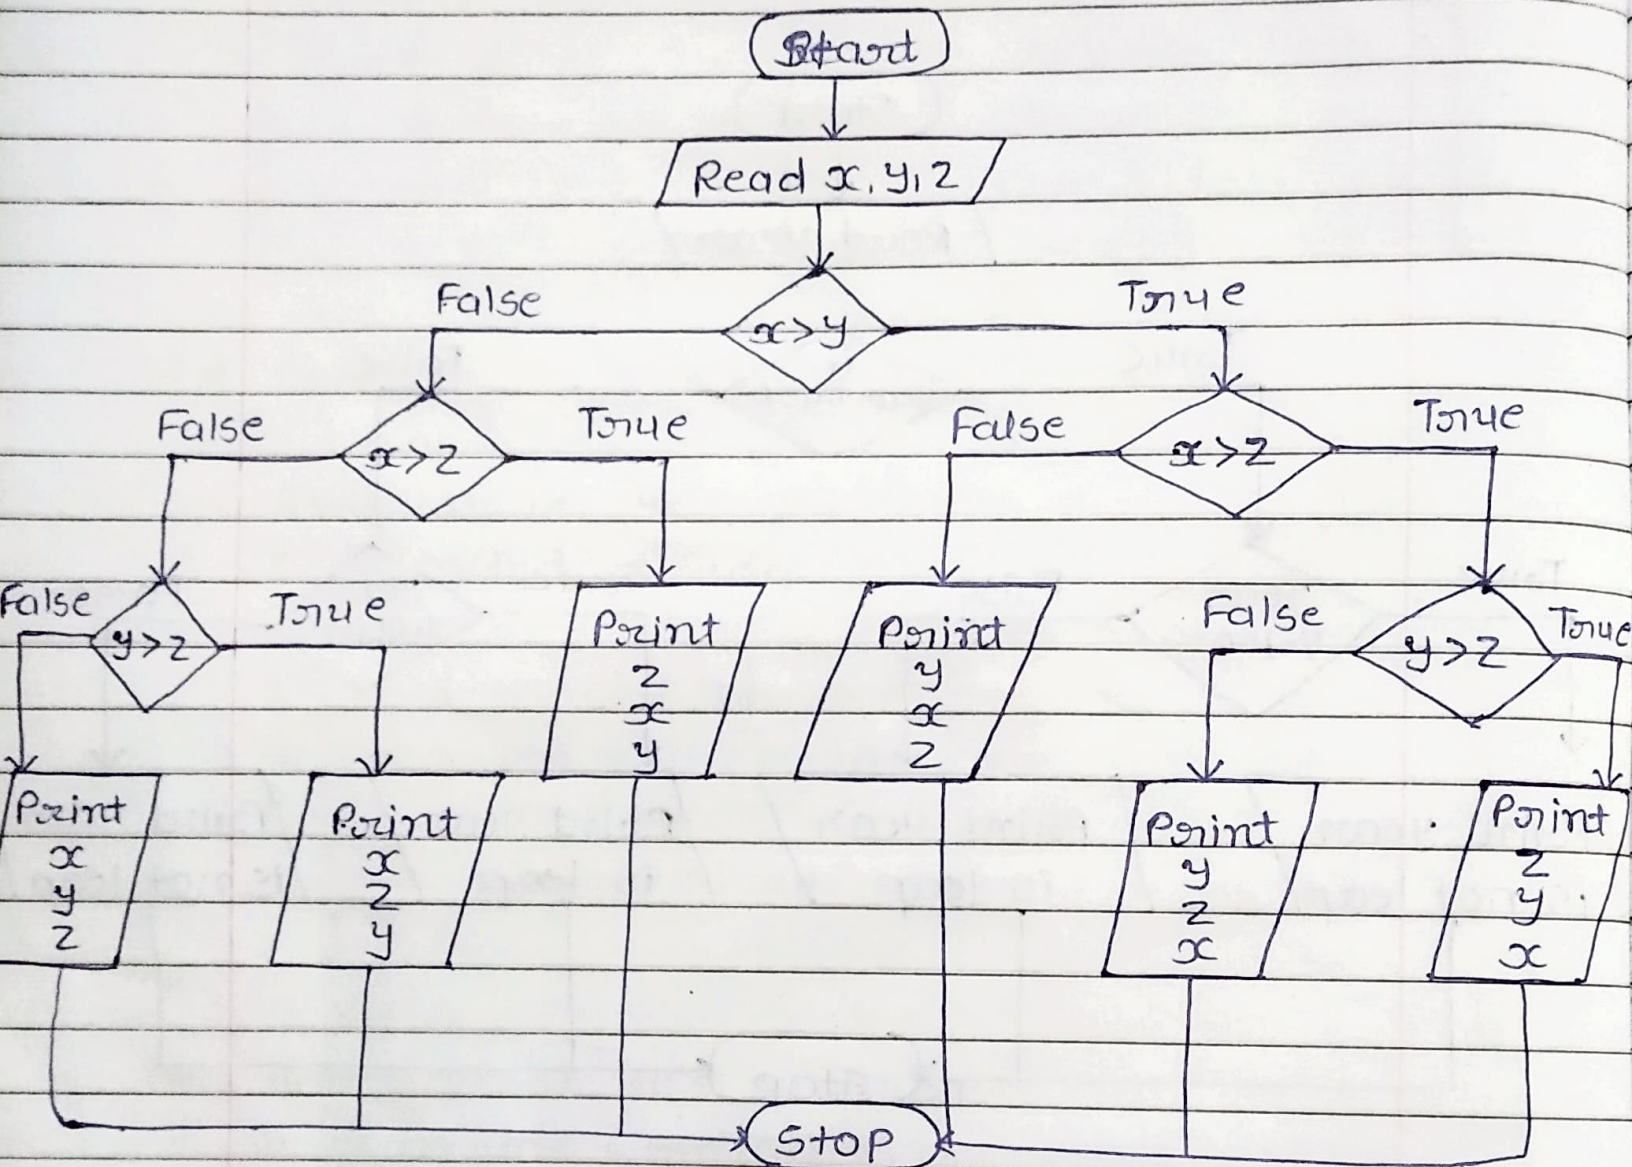 Start
Read x, y, z
False
x>y
True
False
x>z
True
False
x>z
True
False
y>z
True
Print
z
x
y
Print
y
x
z
False
y>z
True
Print
x
y
z
Print
x
z
y
Print
y
z
x
Print
z
y
x
Stop